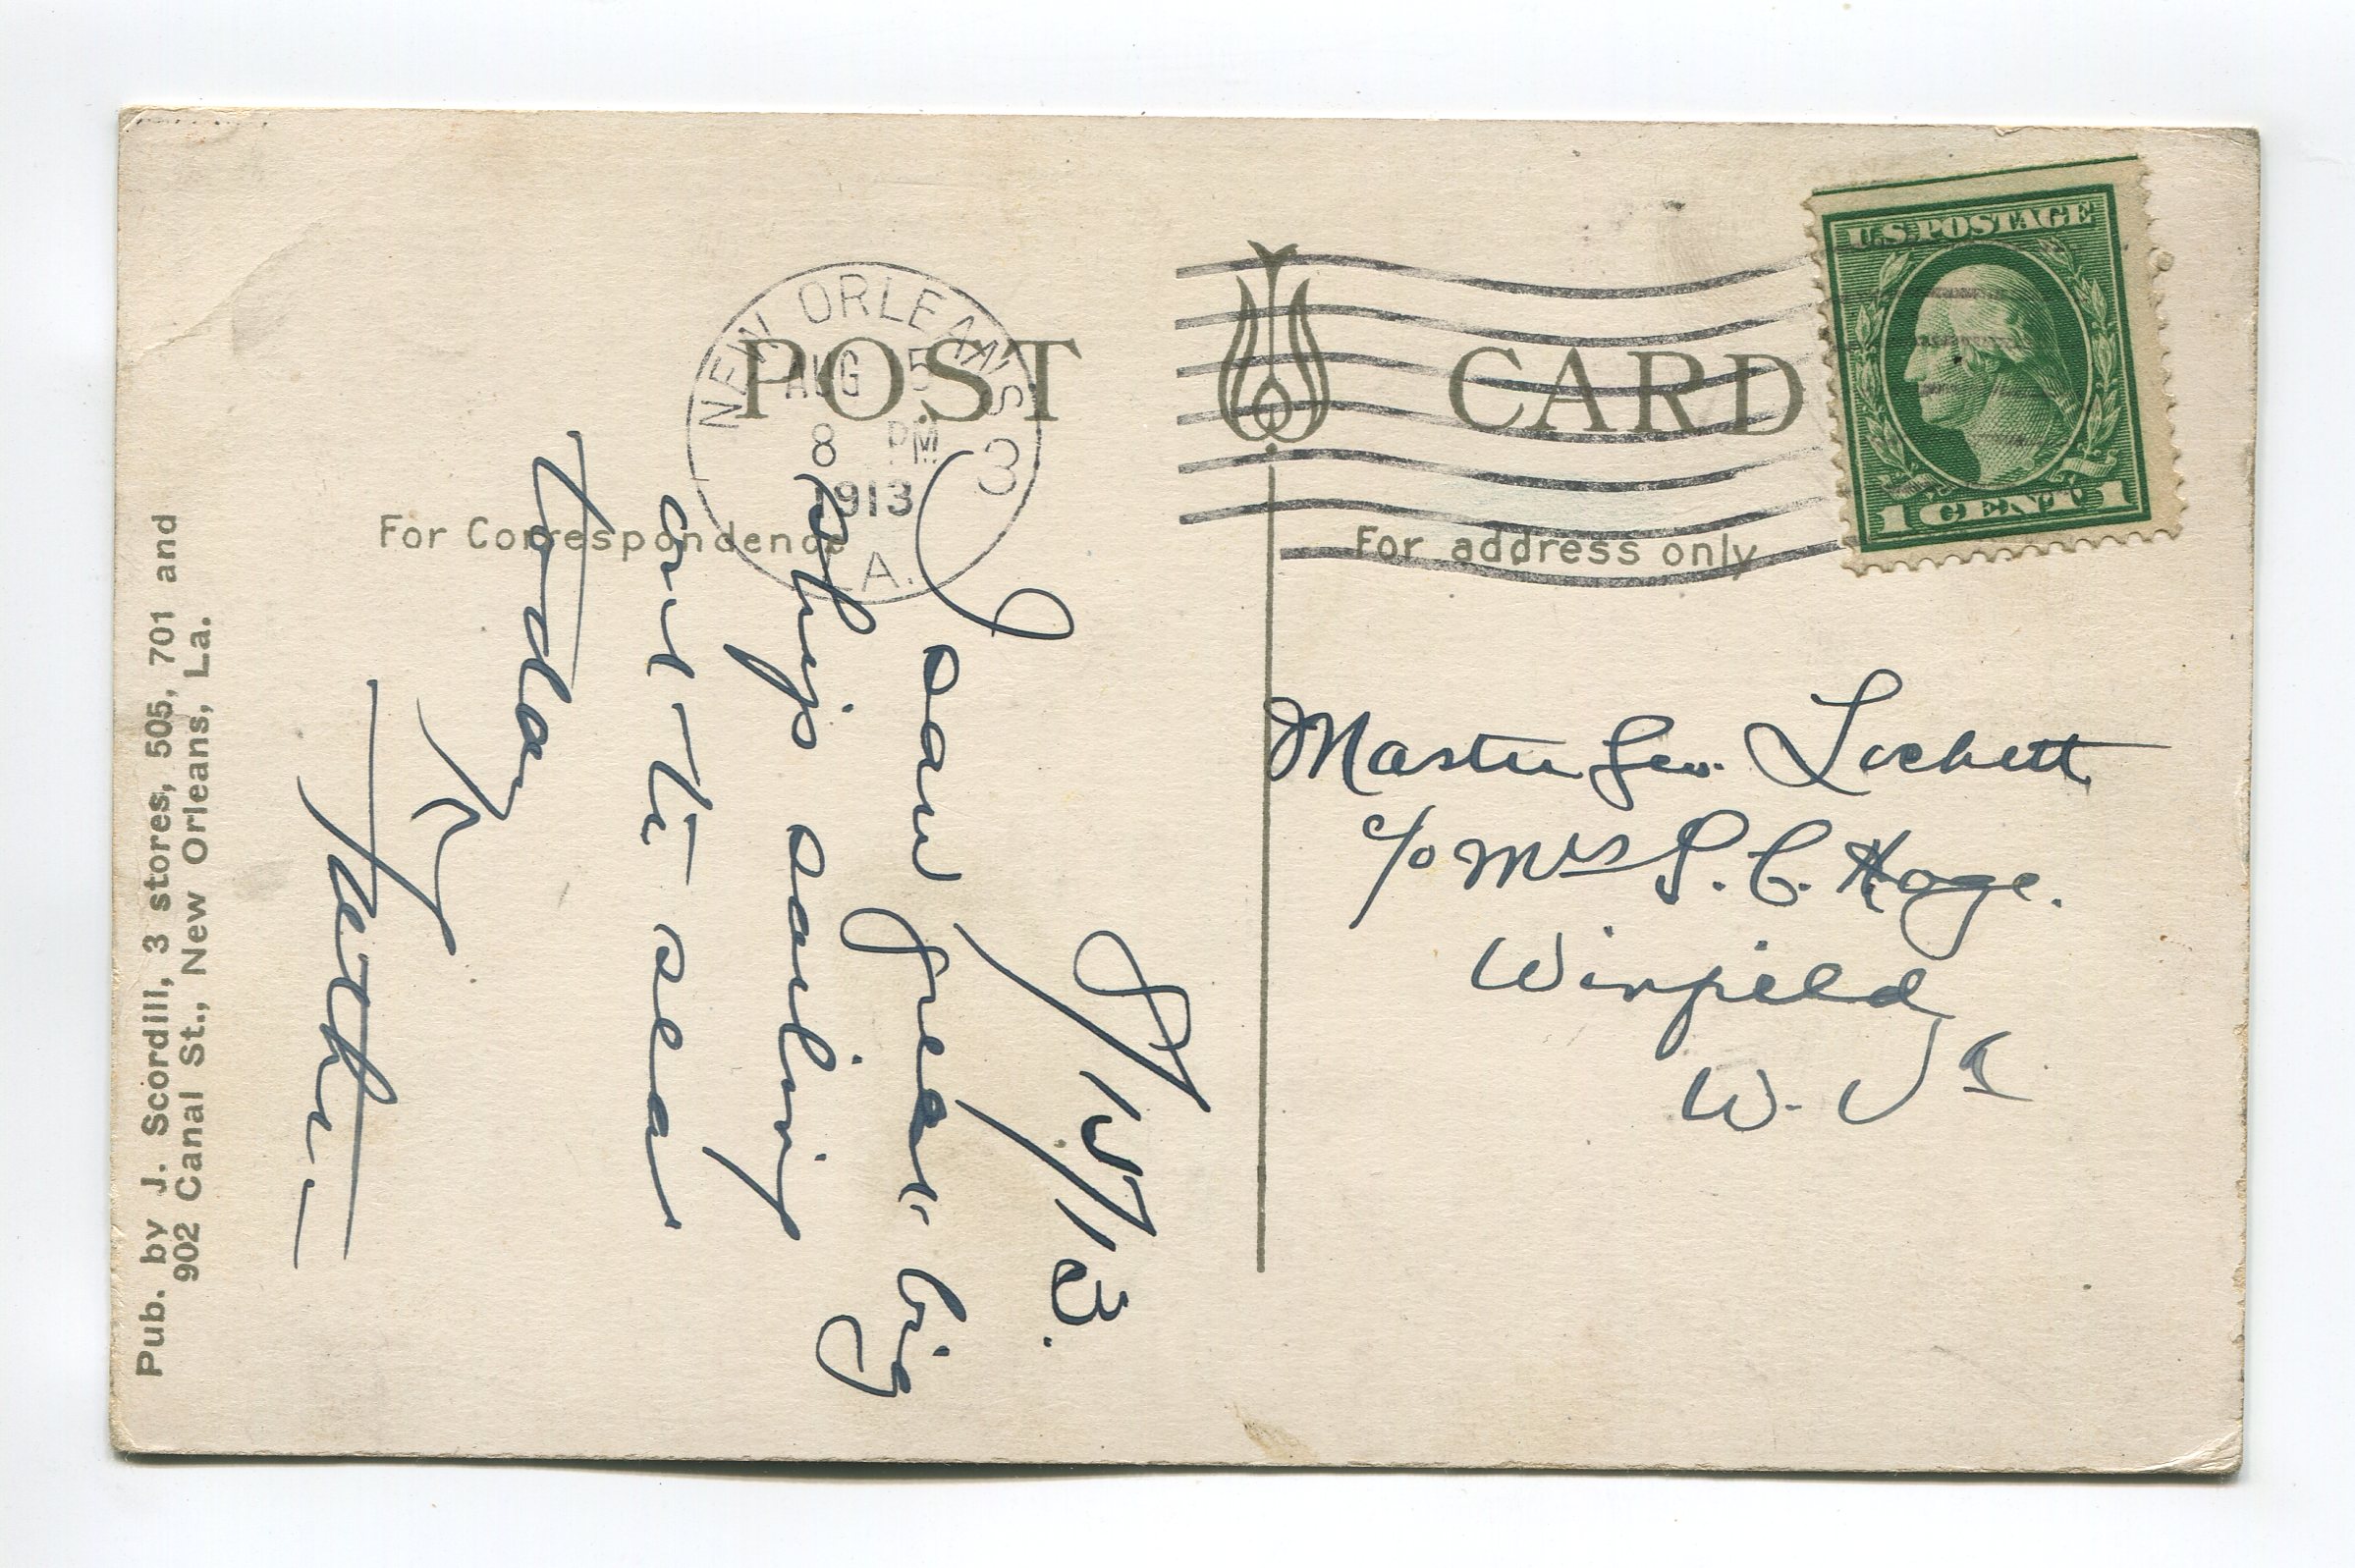 POST CARD
U.S. POSTAGE
1 CENT 1
NEW ORLEANS
AUG 5
8 PM
1913
3
A.
For Correspondence
For address only
8/5/13.
I saw great big
ships sailing
out to sea
today
Master Geo. Lockett
c/o Mrs S. C. Hoge.
Winfield
W. Va
Pub. by J. Scordill, 3 stores, 505, 701 and
902 Canal St., New Orleans, La.